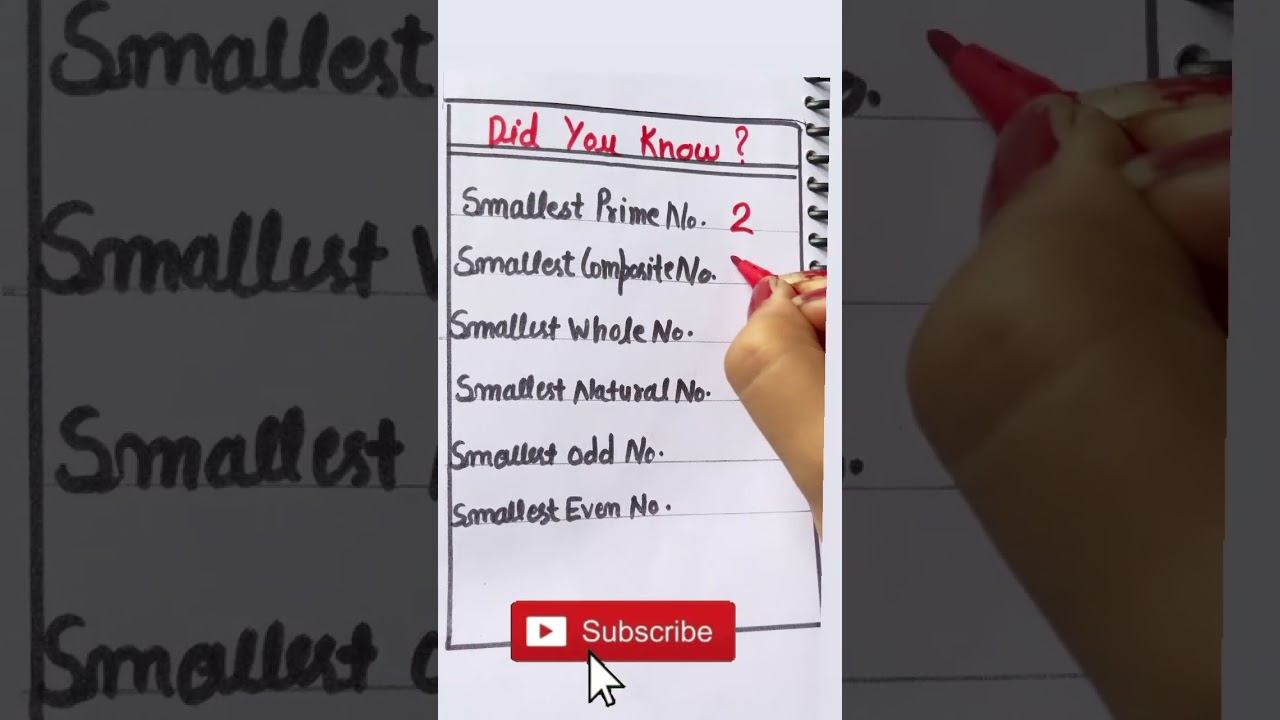 Did You Know ?
Smallest Prime No. 2
Smallest Composite No.
Smallest Whole No.
Smallest Natural No.
Smallest odd No.
Smallest Even No.
Subscribe